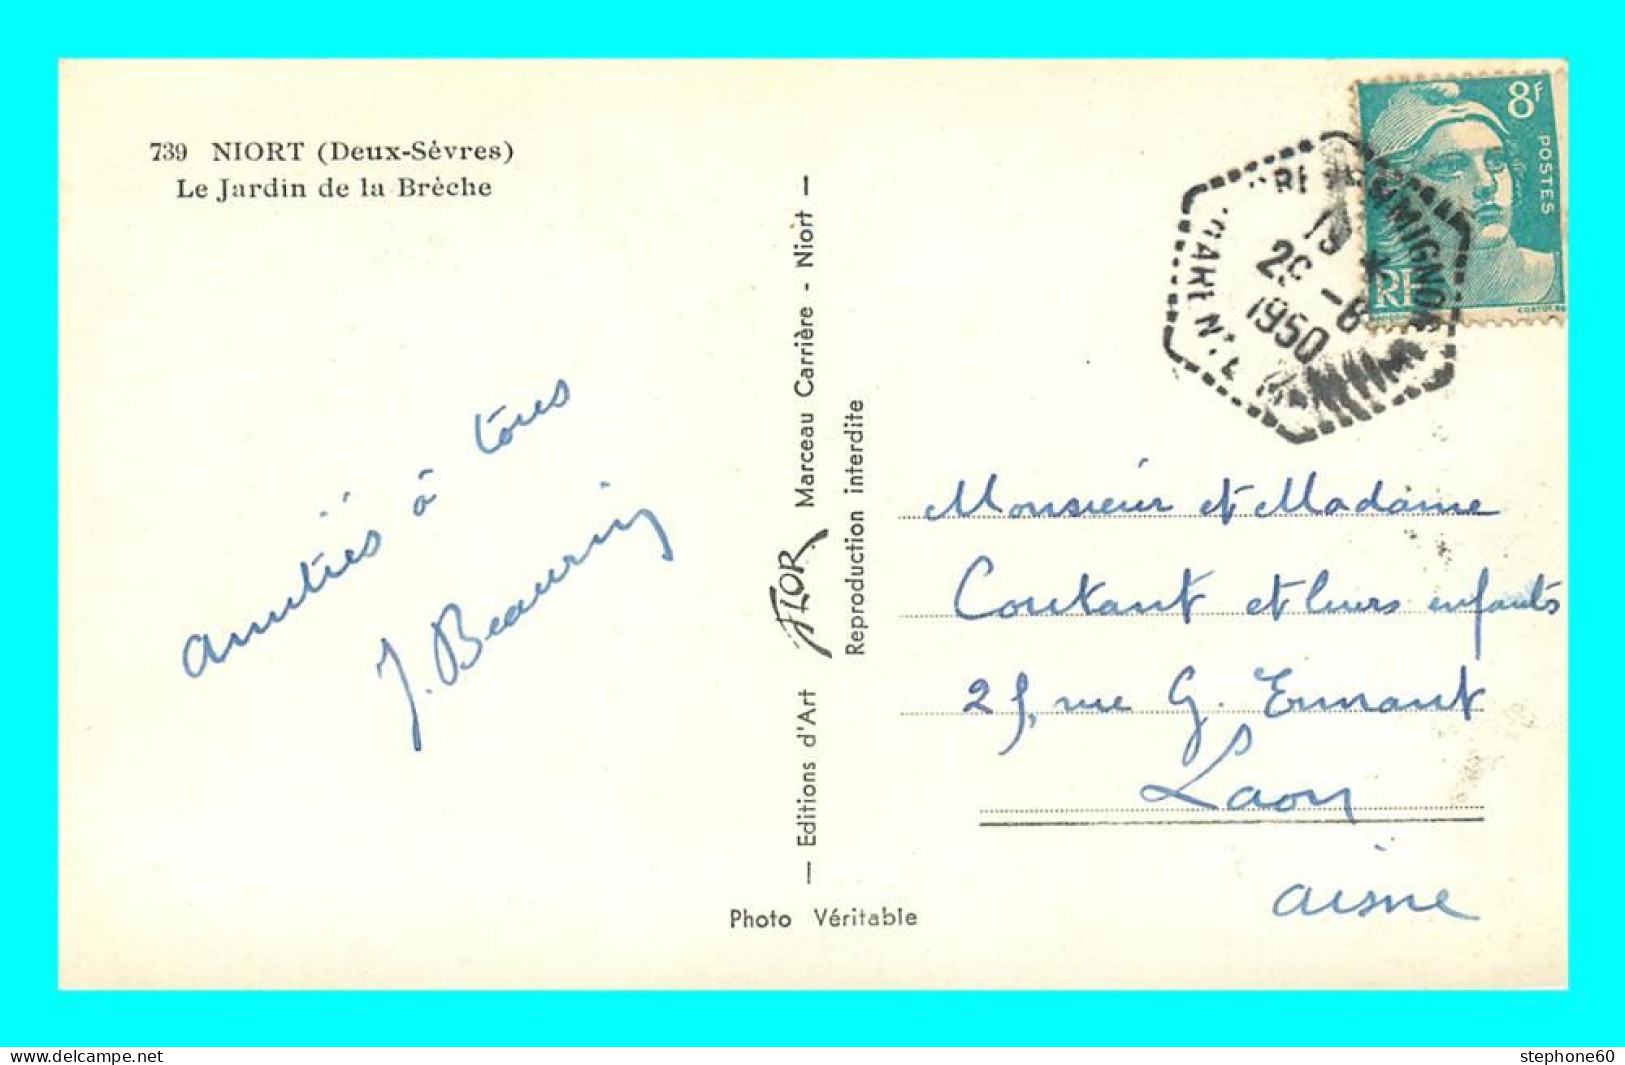 739 NIORT (Deux-Sèvres)
Le Jardin de la Brèche
amitiés à tous
J. Beaurin
— Editions d'Art FLOR Marceau Carrière - Niort —
Reproduction interdite
Photo Véritable
8F
POSTES
RF
19 *
29 -8
1950
Monsieur et Madame
Coutant et leurs enfants
25, rue G. Ermant
Laon
aisne
delcampe.net
stephone60